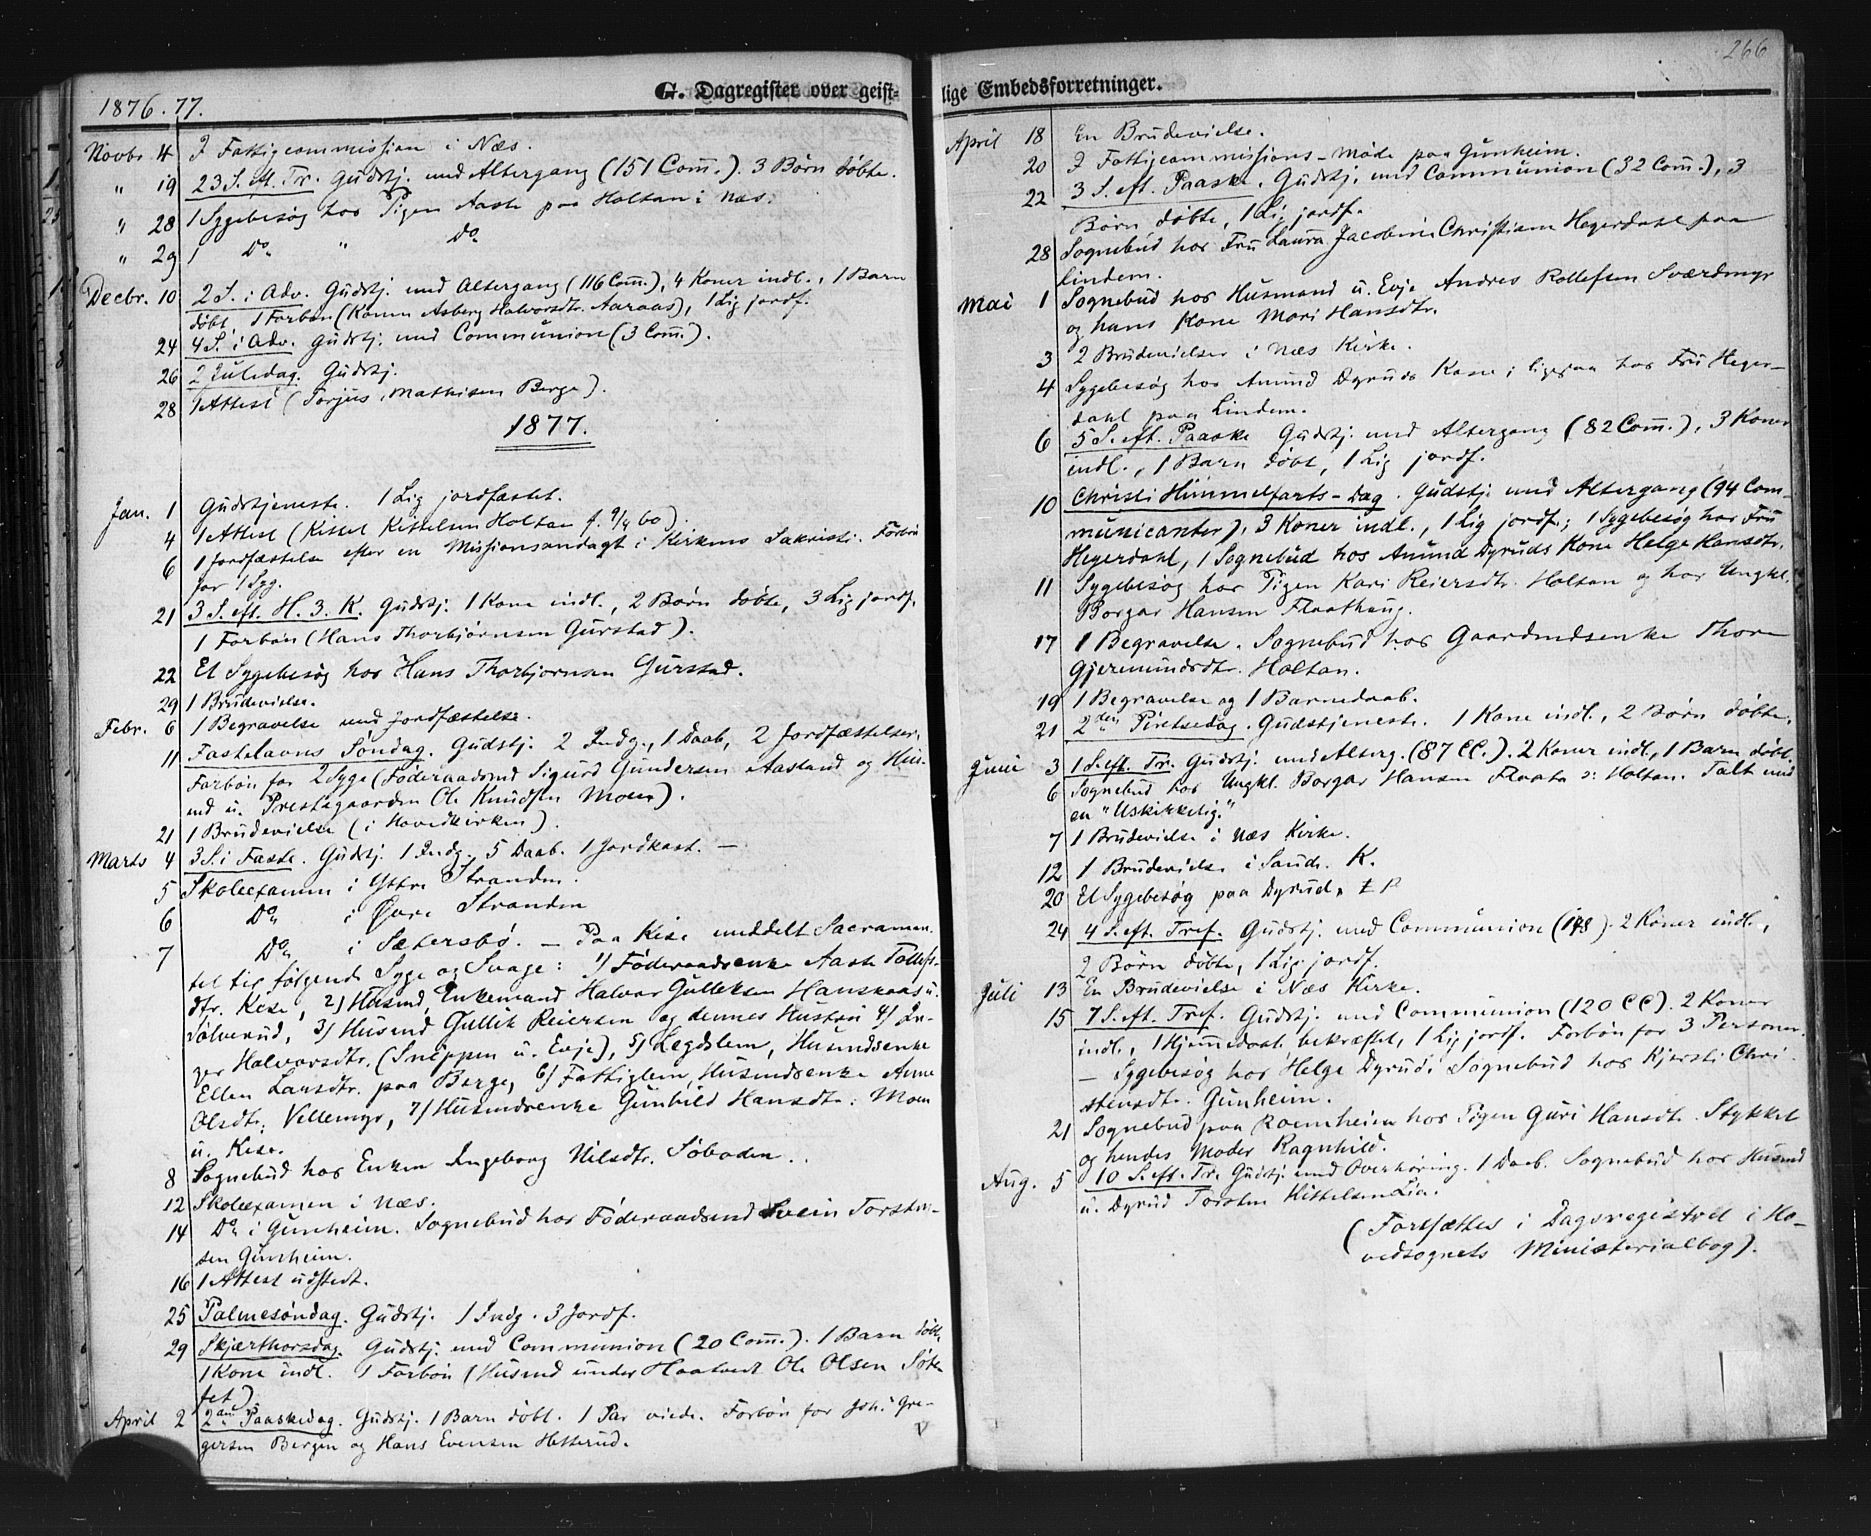 266
G. Dagregister over geist-
lige Embedsforretninger.
1876.77.
Novbr. 4 I Fattigcommission i Næs.
" 19 23 S. eft. Tr. Gudstj. med Altergang (151 Com.). 3 Børn døbte.
" 28 1 Sygebesøg hos Pigen Aaste paa Holtan i Næs.
" 29 1 Do " Do
Decbr. 10 2 S. i Adv. Gudstj. med Altergang (116 Com.), 4 Koner indl., 1 Barn
døbt, 1 Forbøn (Konen Asberg Halvorsdtr. Aaraas), 1 Lig jordf.
24 4 S. i Adv. Gudstj. med Communion (3 Com.).
26 2 Juledag. Gudstj.
28 1 Attest (Torjus Mathisen Berge).
1877.
Jan. 1 Gudstjeneste. 1 Lig jordfæstet.
4 1 Attest (Kittel Kittelsen Holtan f. 9/4 60).
6 1 Jordfæstelse efter en Missionsandagt i Kirkens Sakristi. Forbøn
for 1 Syg.
21 3 S. eft. H. 3. K. Gudstj. 1 Kone indl., 2 Børn døbte, 3 Lig jordf.
1 Forbøn (Hans Thorbjørnsen Gurstad).
22 Et Sygebesøg hos Hans Thorbjørnsen Gurstad.
29 1 Brudevielse.
Febr. 6 1 Begravelse med Jordfæstelse.
11 Fastelavns Søndag. Gudstj. 2 Indg., 1 Daab, 2 Jordfæstelser,
Forbøn for 2 Syge (Føderaadsmd Sigurd Gundersen Aasland og Hus-
md u. Prestegaarden Ole Knudsen Moen).
21 1 Brudevielse (i Hovedkirken).
Marts 4 3 S. i Faste. Gudstj. 1 Indg. 5 Daab. 1 Jordkast. —
5 Skoleexamen i Yttre Stranden.
6 Do i Øvre Stranden
7 Do i Sætersbø. — Paa Kise meddelt Sacramen-
tet til følgende Syge og Svage: 1) Føderaadsenke Aaste Tollefs-
dtr. Kise, 2) Husmd, Enkemand Halvor Gulleksen Hanskaas u.
Sølverud, 3) Husmd Gullik Reiersen og dennes Hustru 4) In-
ger Halvorsdtr. (Sneppen u. Evje), 5) Legdslem, Husmdsenke
Ellen Larsdtr. paa Berge, 6) Fattiglem, Husmdsenke Anne
Olsdtr. Vellemyr, 7) Husmdsenke Gunhild Hansdtr. Moen
u. Kise.
8 Sognebud hos Enken Ingeborg Nilsdtr. Søboden.
12 Skoleexamen i Næs.
14 Do i Gunheim. Sognebud hos Føderaadsmd Svein Torsten-
sen Gunheim.
16 1 Attest udstedt.
25 Palmesøndag. Gudstj. 1 Indg. 3 Jordf.
29 Skjærthorsdag. Gudstj. med Communion (20 Com.). 1 Barn døbt,
1 Kone indl. 1 Forbøn (Husmd under Haatvedt Ole Olsen Søte-
fet)
April 2 2den Paaskedag. Gudstj. 1 Barn døbt. 1 Par viede. Forbøn for Joh. Gre-
gersen Bergen og Hans Evensen Hetterud.
April 18 En Brudevielse.
20 I Fattigcommissions-Møde paa Gunheim.
22 3 S. eft. Paaske. Gudstj. med Communion (32 Com.), 3
Børn døbte, 1 Lig jordf.
28 Sognebud hos Fru Laura Jacobine Christiane Hegerdahl paa
Lindem.
Mai 1 Sognebud hos Husmand u. Evje Andres Rollefsen Sværdmyr
og hans Kone Mari Hansdtr.
3 2 Brudevielser i Næs Kirke.
4 Sygebesøg hos Amund Dyruds Kone; ligesaa hos Fru Heger-
dahl paa Lindem.
6 5 S. eft. Paaske Gudstj. med Altergang (82 Com.), 3 Koner
indl., 1 Barn døbt, 1 Lig jordf.
10 Christi Himmelfarts-Dag. Gudstj. med Altergang (94 Com-
municanter), 3 Koner indl., 1 Lig jordf.; 1 Sygebesøg hos Fru
Hegerdahl, 1 Sognebud hos Amund Dyruds Kone Helge Hansdtr.
11 Sygebesøg hos Pigen Kari Reiersdtr. Holtan og hos Ungkl.
Borgar Hansen Flaathaug.
17 1 Begravelse. Sognebud hos Gaardmdsenke Thore
Gjermundsdtr. Holtan.
19 1 Begravelse og 1 Barnedaab.
21 2den Pintsedag. Gudstjeneste. 1 Kone indl., 2 Børn døbte.
Juni 3 1 S. eft. Tr. Gudstj. med Alterg. (87 CC.). 2 Koner indl., 1 Barn døbt.
6 Sognebud hos Ungkl. Borgar Hansen Flaata o: Holtan. Talt med
en "Uskikkelig".
7 1 Brudevielse i Næs Kirke.
12 1 Brudevielse i Saude K.
20 Et Sygebesøg paa Dyrud.
24 4 S. eft. Tref. Gudstj. med Communion (148). 2 Koner indl.,
2 Børn døbte, 1 Lig jordf.
Juli 13 En Brudevielse i Næs Kirke.
15 7 S. eft. Tref. Gudstj. med Communion (120 CC). 2 Koner
indl., 1 Hjemmedaab bekræftet, 1 Lig jordf. Forbøn for 3 Personer.
— Sygebesøg hos Helge Dyrud; Sognebud hos Kjersti Chri-
stensdtr. Gunheim.
21 Sognebud paa Roemheim hos Pigen Guri Hansdtr. Stykket
og hendes Moder Ragnhild.
Aug. 5 10 S. eft. Tr. Gudstj. med Overhøring. 1 Daab. Sognebud hos Husmd
u. Dyrud Torsten Kittelsen Lia.
(Fortsættes i Dagsregistret i Ho-
vedsognets Ministerialbog).